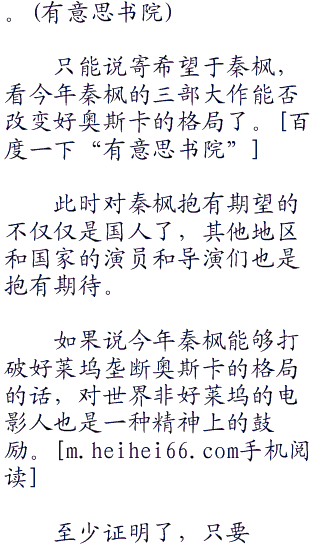 。(有意思书院)
只能说寄希望于秦枫，
看今年秦枫的三部大作能否
改变好奥斯卡的格局了。[百
度一下“有意思书院”]
此时对秦枫抱有期望的
不仅仅是国人了，其他地区
和国家的演员和导演们也是
抱有期待。
如果说今年秦枫能够打
破好莱坞垄断奥斯卡的格局
的话，对世界非好莱坞的电
影人也是一种精神上的鼓
励。[m.heihei66.com手机阅
读]
至少证明了，只要